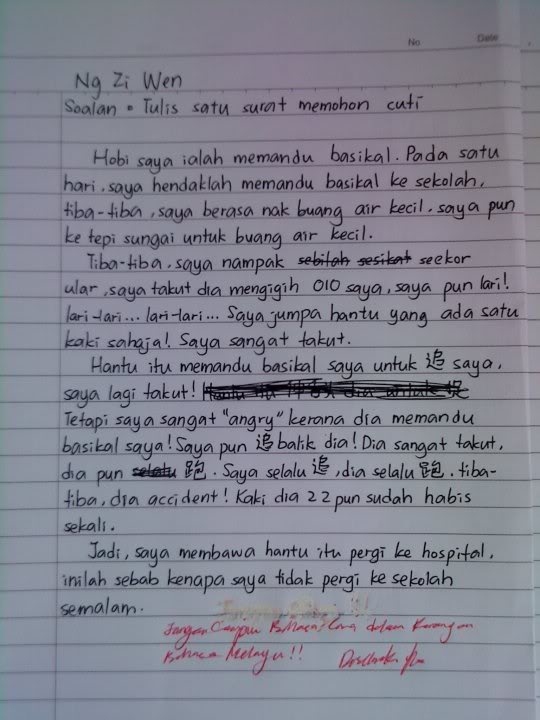 No
Date
Ng Zi Wen
Soalan • Tulis satu surat memohon cuti
Hobi saya ialah memandu basikal. Pada satu
hari, saya hendaklah memandu basikal ke sekolah,
tiba-tiba, saya berasa nak buang air kecil, saya pun
ke tepi sungai untuk buang air kecil.
Tiba-tiba, saya nampak sebilah sesikat seekor
ular, saya takut dia mengigih 010 saya, saya pun lari!
lari-lari... lari-lari... Saya jumpa hantu yang ada satu
kaki sahaja! Saya sangat takut.
Hantu itu memandu basikal saya untuk 追 saya,
saya lagi takut! Hantu itu dia untuk 捉
Tetapi saya sangat "angry" kerana dia memandu
basikal saya! Saya pun 追 balik dia! Dia sangat takut,
dia pun selalu 跑. Saya selalu 追, dia selalu 跑. tiba-
tiba, dia accident! Kaki dia 22 pun sudah habis
sekali.
Jadi, saya membawa hantu itu pergi ke hospital,
inilah sebab kenapa saya tidak pergi ke sekolah
semalam.
Jangan Campur Bahasa Cina dalam Karangan
Bahasa Melayu!!